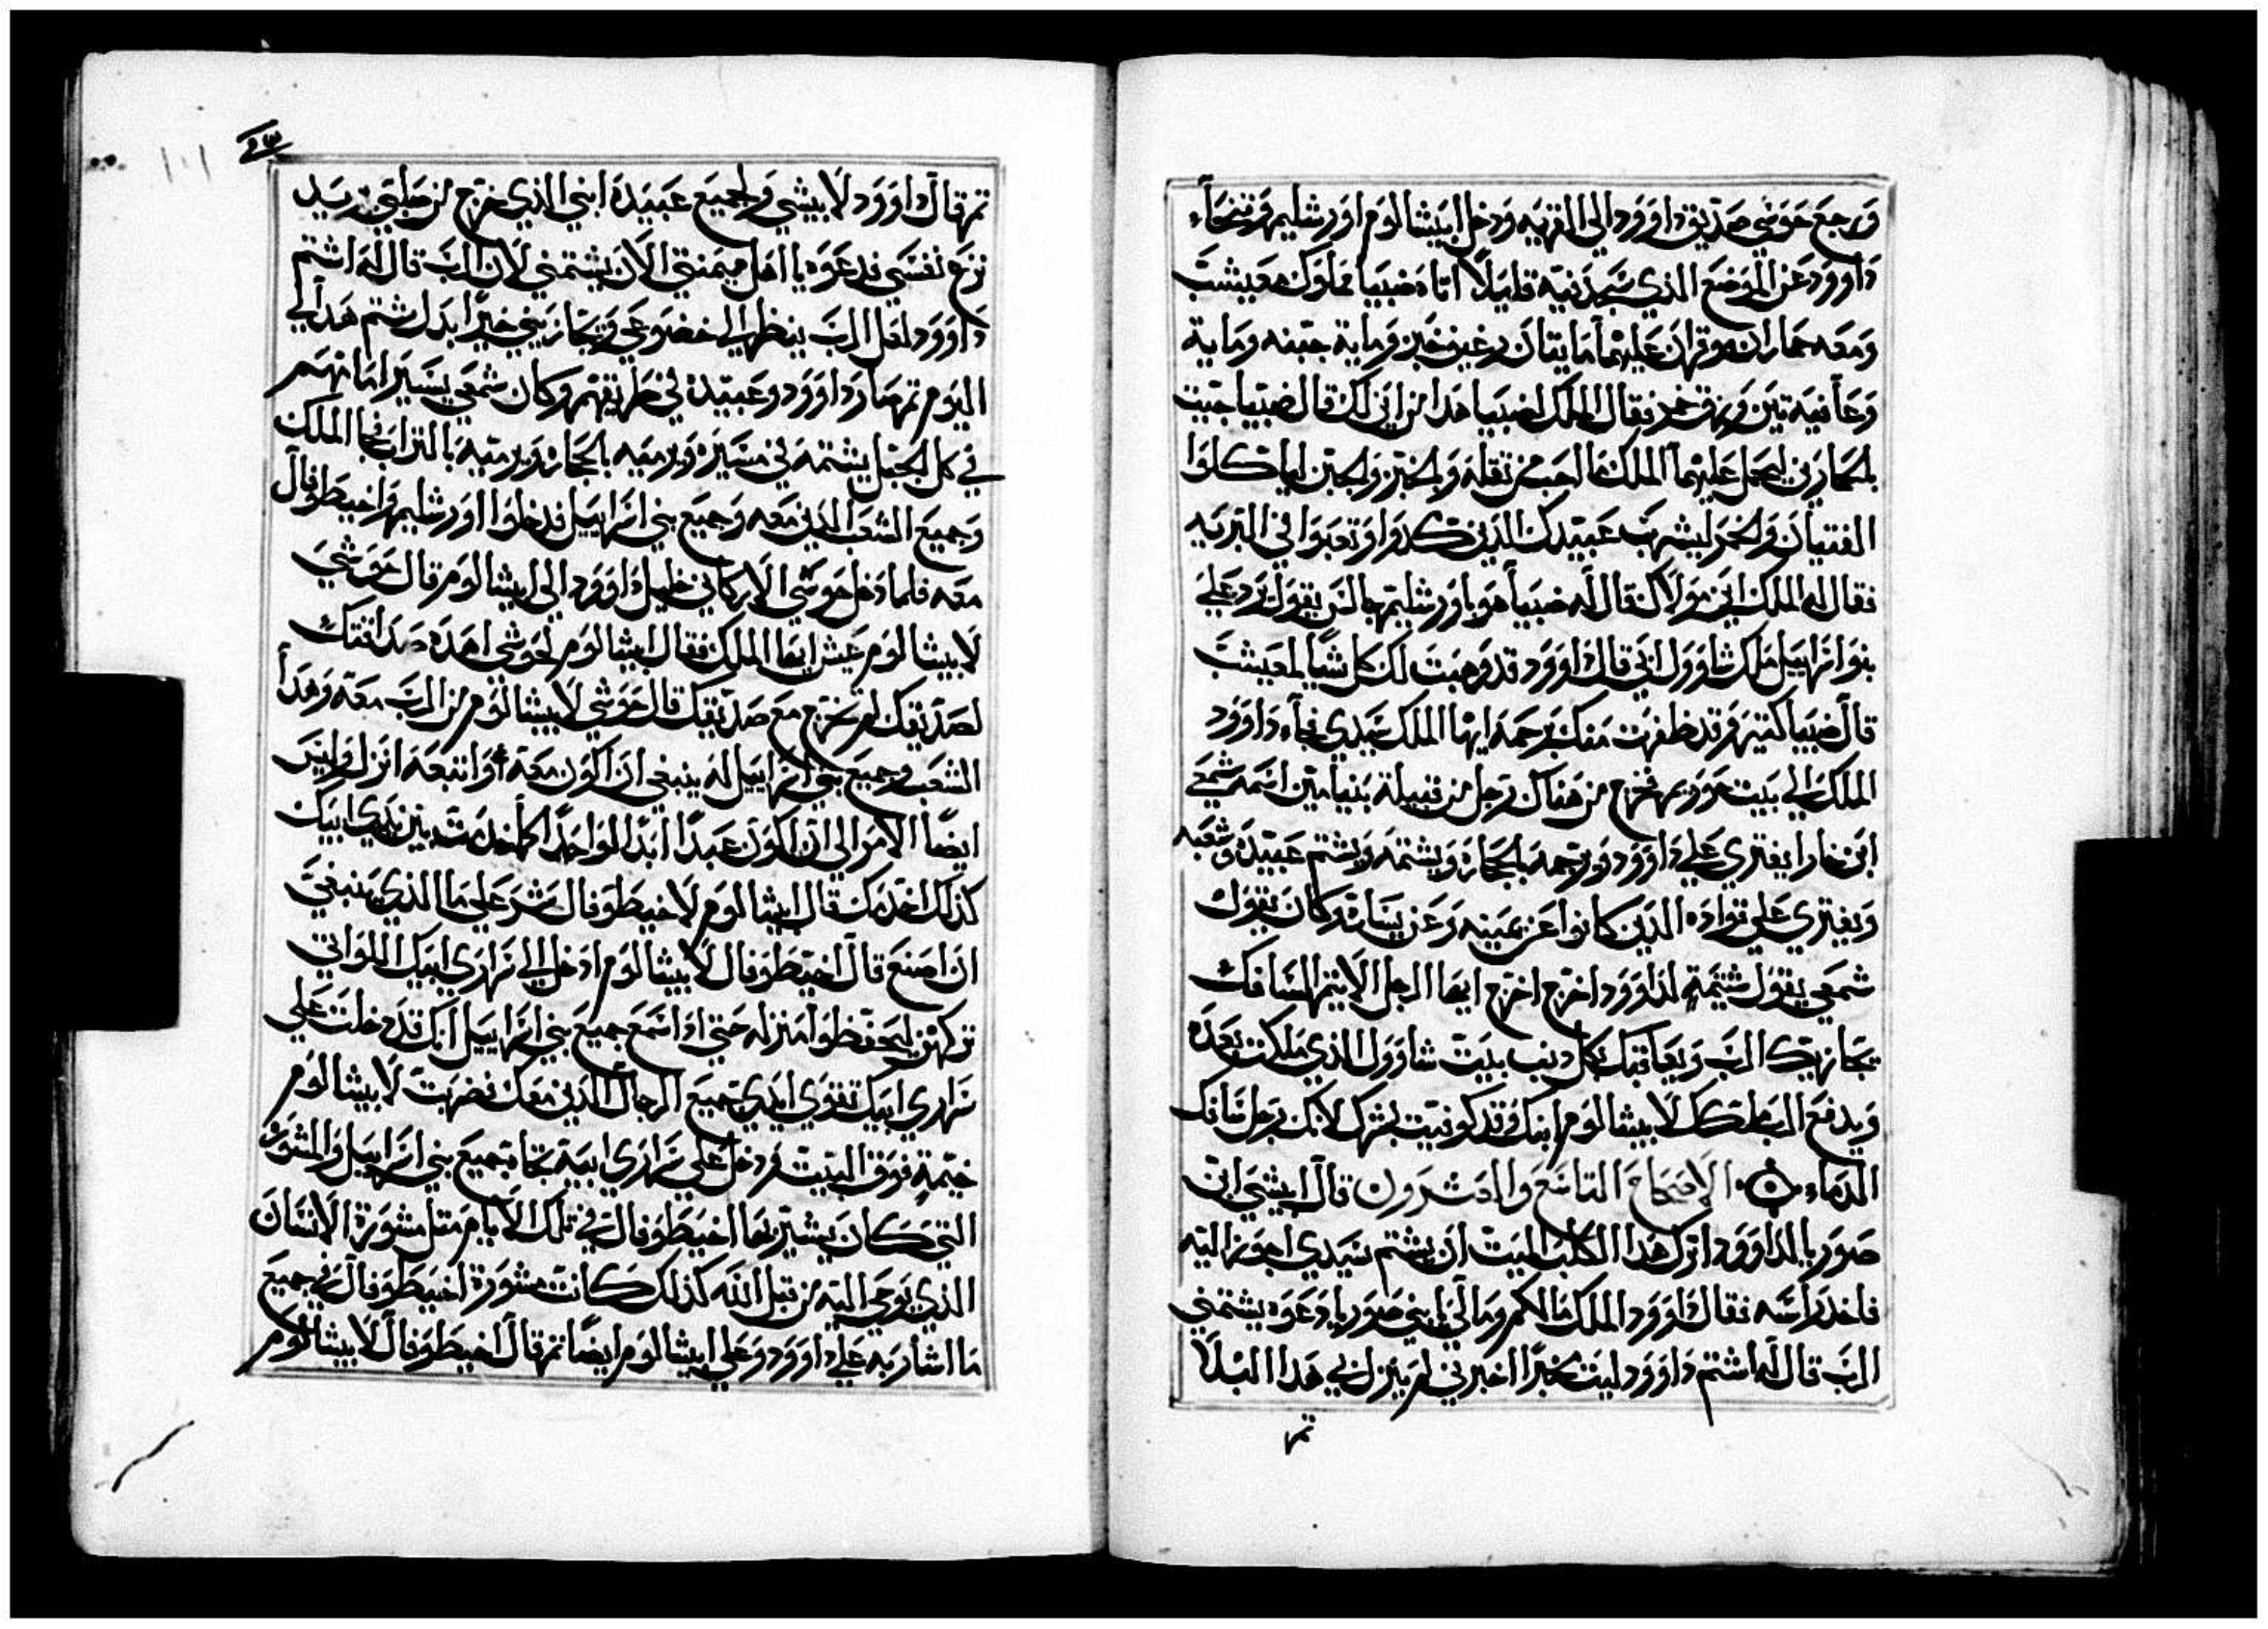 ورجع حوشي صديق داوود الي القريه ودخل ابيشالوم اورشليم وتنحاء
داوود عن الموضع الذي سجد فيه قليلاً اتاه ضيبيا مملوك معيشت
ومعه حماران موقران عليهما مايتان رغيف خبز وماية جبنه وماية
وعآ فيه تين وزق خمر فقال الملك لضيبيا هدا من اين لك قال ضيبيا جيت
بالحمارين ليحمل عليهما الملك ما احب من تقله والخبز والجبن لياكلوا
الفتيان والخمر ليشرب عبيدك الدين كدوا وتعبوا في البريه
فقال له الملك اين مولاك قال له ضيبيا هو باورشليم جالس يقول يرد علي
بنوا اسراييل ملك شاوول ابي قال داوود قد وهبت لك كل شيا لمعيشت
قال ضيبيا كتير قد ظفرت منك برحمه ايها الملك سيدي فجاء داوود
الملك الي بيت حوريم فخرج من هناك رجل من قبيلة بنيامين اسمه شمعي
ابن جارا يفتري علي داوود ويرجمه بالحجاره ويشتمه ويشتم عبيده وشعبه
ويفتري علي قواده الدين كانوا عن يمينه وعن يساره وكان يقول
شمعي يقول شتيمة لداوود اخرج اخرج ايها الرجل الاتيم السافك
يجازيك الرب ويعاقبك بكل دنب بيت شاوول الذي ملكت بعده
ويدفع الرب ملكك لابيشالوم ابنك وقد كونيت بشرك لانك رجل سافك
الدماء الاصحاح التاسع والعشرون قال ابيشي ابن
صوريا لداوود اترك هدا الكلب الميت ان يشتم سيدي اجوز اليه
فاخد راسه فقال داوود الملك مالكم ومالي يا بني صوريا دعوه يشتمني
الرب قال له اشتم داوود ليت مخبراً اخبرني لم ينزل بي هدا البلآ
تم
تم قال داوود لابيشي ولجميع عبيده ابني الذي خرج من صلبي يريد
نزع نفسي فدعوه يا اهل ميمنتي الان يشتمني لان الرب قال له اشتم
داوود لعل الرب ينظر الي خضوعي ويجازيني خيراً بدل شتم هدا لي
اليوم تم سار داوود وعبيده في طريقهم وكان شمعي يسير امامهم
في كل الجبل يشتمه في مسيره ويرميه بالحجاره ويرميه بالتراب فجا الملك
وجميع الشعب الدين معه وجميع بني اسراييل فدخلوا اورشليم واخيطوفال
معه فلما دخل حوشي الاركاني خليل داوود الي ابيشالوم قال حوشي
لابيشالوم عيش ايها الملك فقال ابيشالوم لحوشي اهده صداقتك
لصديقك لم تخرج مع صديقك قال حوشي لابيشالوم من الرب معه وهدا
الشعب وجميع بني اسراييل له ينبغي ان اكون معه او اتبعه انزل وليس
ايضاً الامر الي ان اكون عبداً ابداً لواحداً كما خدمت بين يدي ابيك
كذلك اخدمك قال ابيشالوم لاخيطوفال شر علي ما الذي ينبغي
ان اصنع قال اخيطوفال لابيشالوم ادخل الي سراري ابيك اللواتي
تركهن ليحفظوا منزله حتي اذا سمع جميع بني اسراييل انك قد دخلت علي
سراري ابيك تقوي ايدي جميع الرجال الدين معك فضربت لابيشالوم
خيمة فوق البيت ودخل علي سراري ابيه تجاه جميع بني اسراييل والمشوره
التي كان يشير بها اخيطوفال في تلك الايام متل مشورة الانسان
الذي يوحي اليه من قبل الله كذلك كانت مشورة اخيطوفال في جميع
ما اشار به علي داوود وعلي ابيشالوم ايضاً تم قال اخيطوفال لابيشالوم